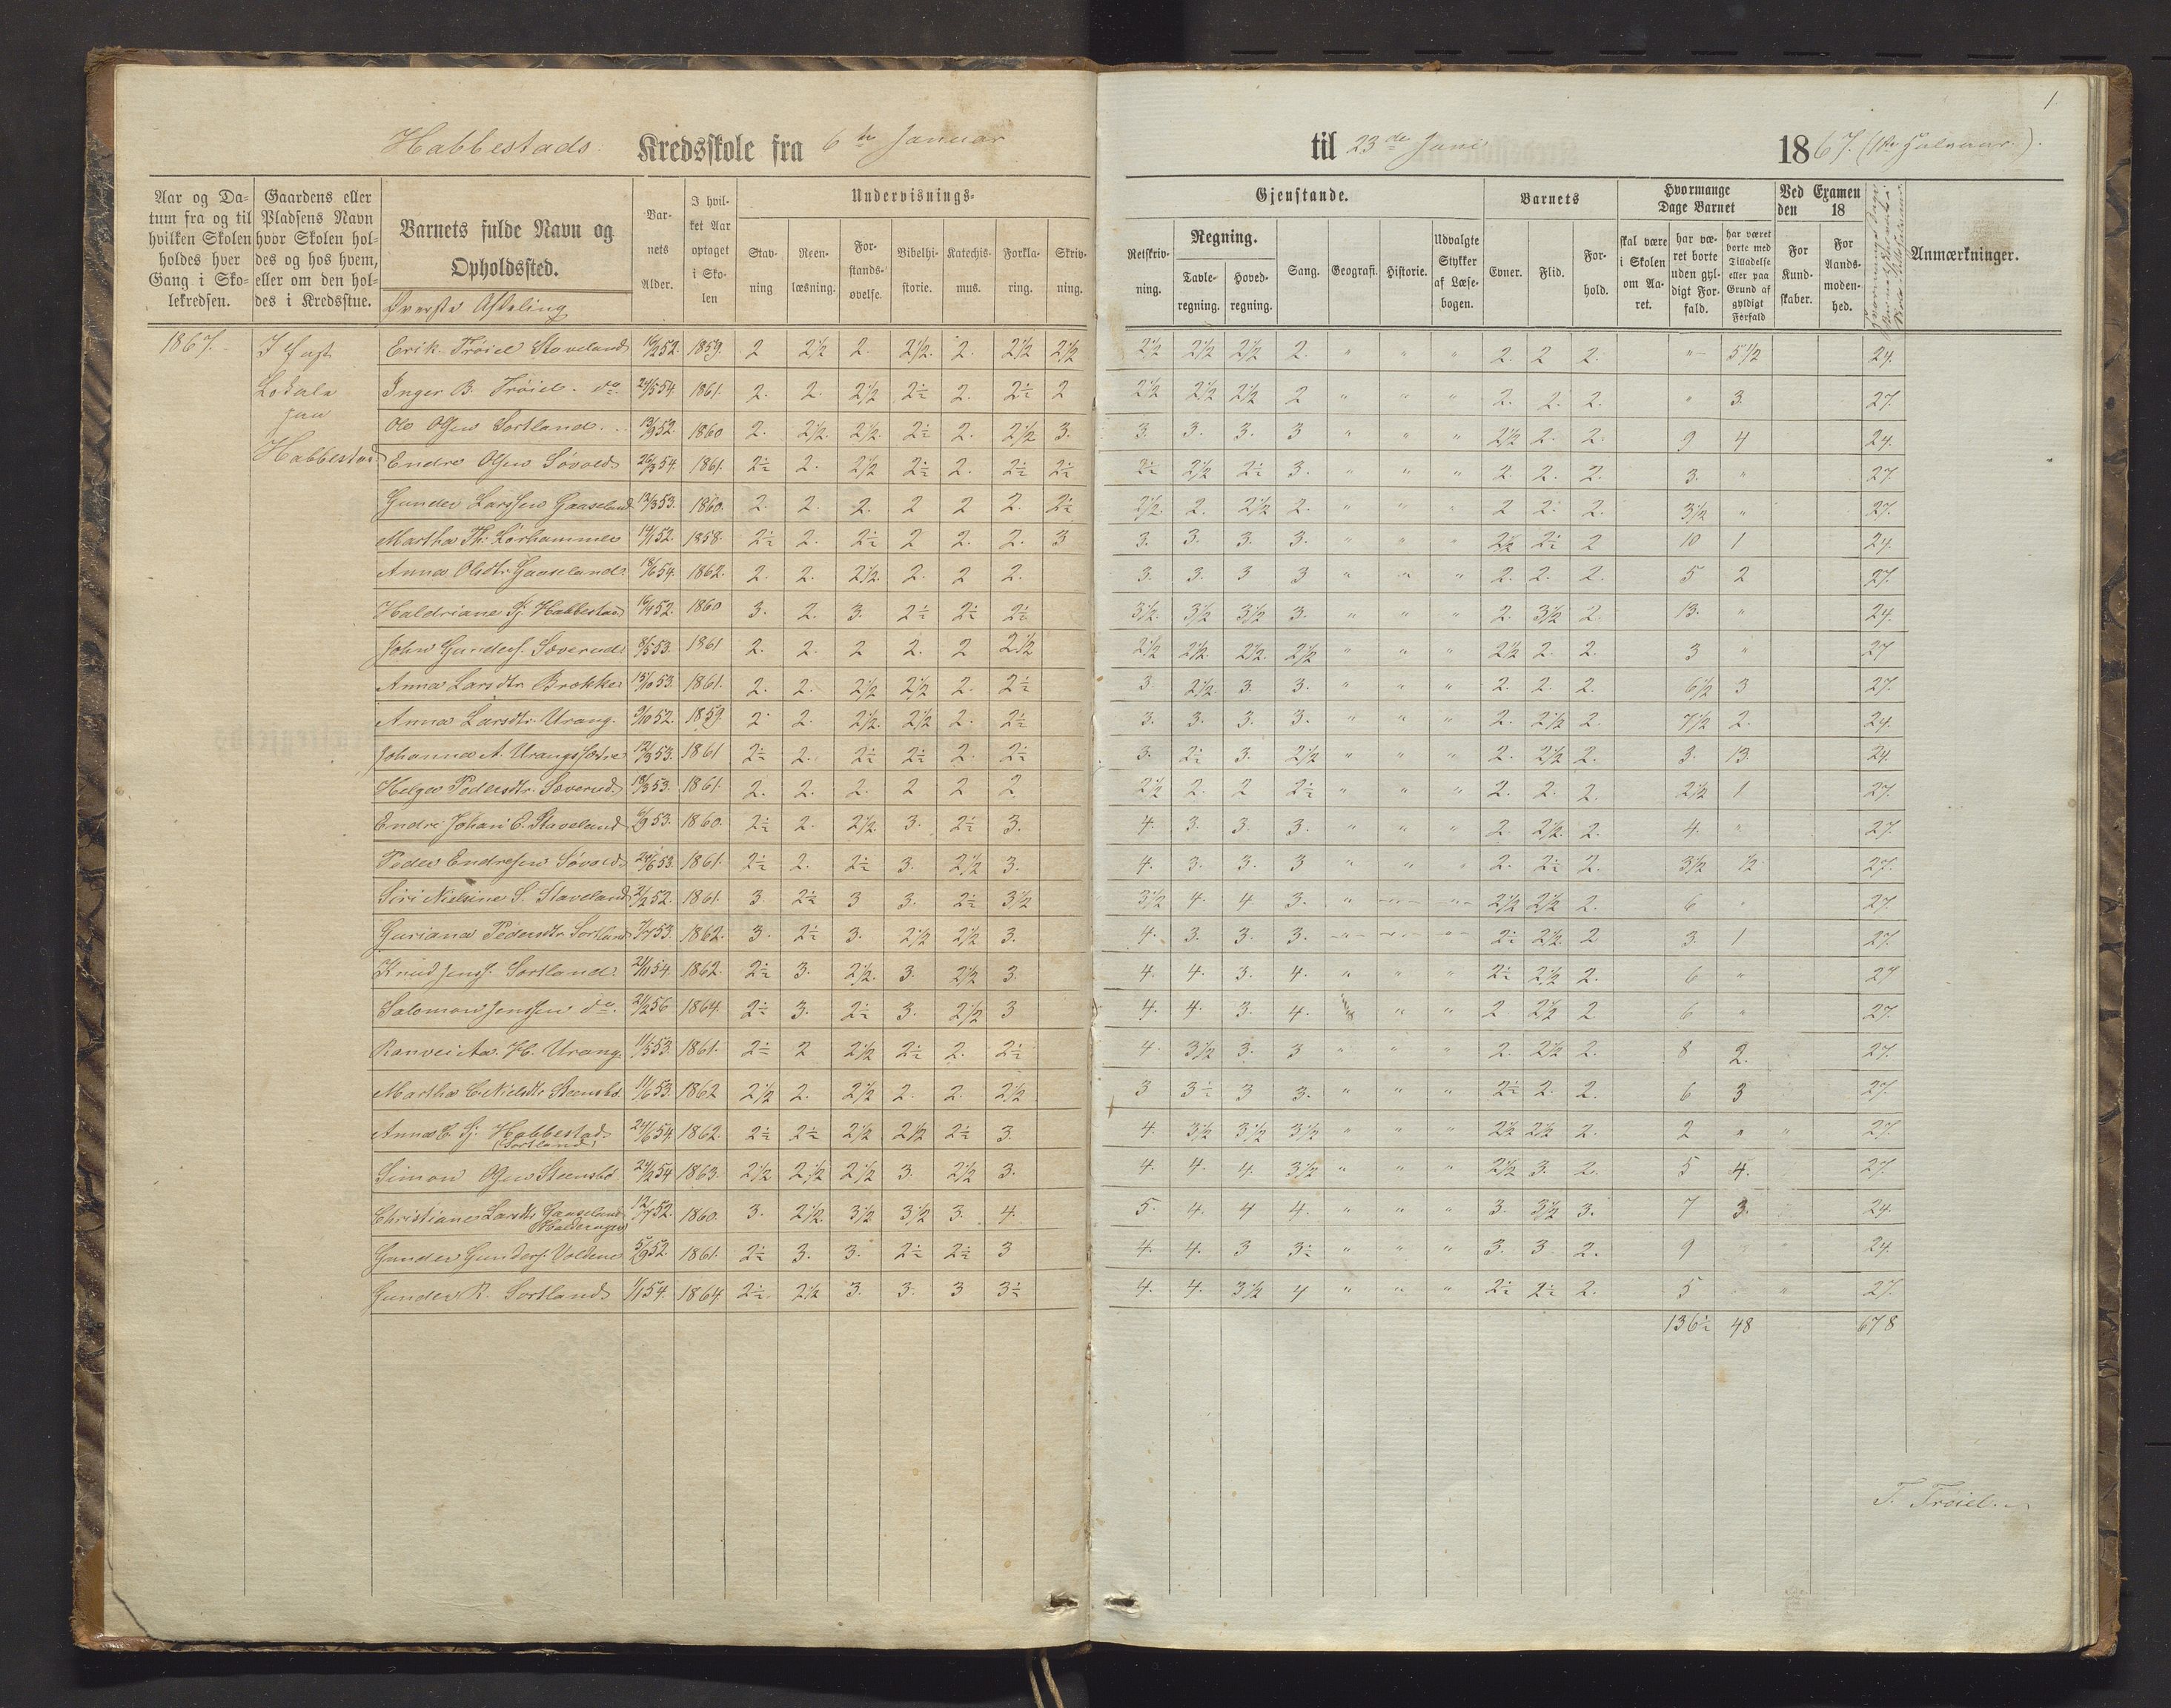 1
Habbestads Kredsskole fra 6te Januar til 23de Juni 1867. (1ste Halvaar).
Aar og Datum fra og til hvilken Skolen holdes hver Gang i Skolekredsen.
Gaardens eller Pladsens Navn hvor Skolen holdes og hos hvem, eller om den holdes i Kredsstue.
Barnets fulde Navn og Opholdssted.
Øverste Afdeling
Barnets Alder.
I hvilket Aar optaget i Skolen
Undervisnings-
Stavning
Reenlæsning.
Forstandsøvelse.
Bibelhistorie.
Katechismus.
Forklaring.
Skrivning.
Gjenstande.
Retskrivning.
Regning.
Tavleregning.
Hovedregning.
Sang.
Geografi.
Historie.
Udvalgte Stykker af Læsebogen.
Barnets
Evner.
Flid.
Forhold.
Hvormange Dage Barnet
skal være i Skolen om Aaret.
har været borte uden gyldigt Forfald.
har været borte med Tilladelse eller paa Grund af gyldigt Forfald
Ved Examen den 18
For Kundskaber.
For Aandsmodenhed.
Anmærkninger.
1867.
I fast
Lokale
paa
Habbestad
Erik Trøiel Staveland 16/2 52. 1859. 2 2½ 2. 2½. 2. 2½ 2½ 2½ 2½ 2½ 2. " " " 2. 2 2. "- 5½ 24.
Inger B. Trøiel. do. 24/5 54. 1861. 2. 2. 2½ 2½ 2. 2½ 2 2½ 2½ 2½ 2 " " " 2. 2. 2. " 3. 27.
Ole Olsen Sortland. 13/9 52. 1860 2. 2½. 2½. 2½ 2. 2½ 3. 3. 3. 3. 3 " " " 2½ 2. 2. 9 4 24.
Endre Olsen Søvold 26/3 54. 1861. 2½ 2. 2½ 2½ 2. 2½ 2½ 2½ 2½ 2½ 3. " " " 2. 2. 2. 3. " 27.
Gunder Larssen Gaaseland 13/3 53. 1860. 2. 2. 2. 2 2 2. 2½ 2½. 2. 2½ 2. " " " 2 2. 2. 3½ " 27.
Martha Th. Lørhammer 14/1 52. 1858. 2½ 2. 2½ 2 2. 2. 3 3. 3. 3. 3. " " " 2½ 2½ 2 10 1 24.
Anna Olsdtr. Gaaseland 18/6 54. 1862. 2. 2. 2½. 2. 2 2. 3. 3. 3 3 " " " 2. 2. 2. 5 2 27.
Haldriane Gj. Habbestad 16/9 52. 1860 3. 2. 3. 2½ 2½ 2½ 3½. 3½ 3½ 3. " " " 2. 3½ 2. 13. " 24.
John Gunders. Sæverud 8/5 53. 1861 2. 2. 2 2. 2 2½ 2½ 2½. 2½. 2½ " " " 2½ 2. 2. 3 " 27
Anna Larsdtr. Brekke 15/10 53. 1861. 2. 2. 2½ 2½ 2. 2½ 3. 2½. 3. 3. " " " 2. 2. 2. 6½ 3 27.
Anna Larsdtr. Urang. 9/10 52. 1859. 2 2. 2½. 2½ 2. 2½ 3. 3. 3. 3. " " " 2. 2½ 2. 7½ 2. 24.
Johanna A. Urangsædre 12/3 53. 1861 2½ 2. 2½ 2½ 2. 2½ 3. 2½ 3. 2½ " " " 2. 2½ 2. 3. 13. 24.
Helga Pedersdtr. Sæverud. 18/3 53. 1861. 2. 2. 2. 2 2 2 2½ 2. 2 2½ " " " 2. 2. 2. 2½ 1 27.
Endre Johan E. Staveland 6/9 53. 1860. 2½ 2. 2½. 3. 2½ 3. 4. 3. 3. 3. " " " 2. 2½. 2. 4. " 27.
Peder Endresen Søvold 24/6 53. 1861. 2½ 2. 2½ 3. 2½ 3. 4. 3. 3. 3 " " " 2. 2½ 2. 3½ ½ 27.
Siri Nielsine S. Staveland 21/2 52. 1861. 3. 2½ 3 3. 2½ 3½ 3½ 4. 4 3. " " " 2½ 2½ 2. 6 " 27.
Guriana Pedersdtr. Sortland 7/7 53. 1862. 3. 2½ 3. 2½ 2½ 3. 4. 3. 3. 3. " " " 2½ 2½. 2 3. 1 27.
Knud Jenss. Sortland 21/11 54. 1862. 2½ 3. 2½. 3. 2½ 3. 4. 4. 3. 4. " " " 2½ 2½ 2. 6 " 27
Salomon Jenssen do. 21/2 56 1864. 2½ 3. 2½ 3. 2½ 3 4. 4. 3. 4. " " 2 2½ 2 6 " 27.
Ranvei Aa. H. Urang. 11/3 53. 1861. 2½ 2 2½ 2½ 2. 2½ 4. 3½ 3. 3 " " " 2. 2½ 2. 8 2. 27.
Martha C. Nielsdtr. Steensbø. 11/6 53. 1862 2½ 2. 2½ 2. 2. 2½ 3 3½ 3 3. " " " 2½ 2. 2. 6 3 27.
Anna E. Gj. Habbestad (Sortland) 24/6 54. 1862. 2½ 2½ 2½ 2½ 2½ 3. 4. 3½ 3½ 3½ " " " 2½ 2½ 2. 2 " " 27.
Simon Olsen Steensbø 24/2 54 1863. 2½ 2½ 2½ 3. 2½ 3. 4. 4. 4. 3½ " " " 2½ 3. 2. 5 4. 27.
Christiane Larsdtr. Gaaseland 12/7 52. 1860. 3. 2½. 3½ 3½ 3. 4. 5. 4. 4 4. " " " 3. 3½ 3. 7 3. 24.
Gunder Gunders. Voldene 5/9 52. 1861. 2½ 3. 3. 2½ 2½ 3 4. 4. 3 3½ " " " 3. 3 2. 9 24.
Gunder R. Sortland 1/1 54. 1864 2½. 2½ 3. 3. 3 3½ 4. 4. 3½ 4 " " " 2½ 2½ 2. 5 " 27.
136½ 48 678
T. Trøiel.